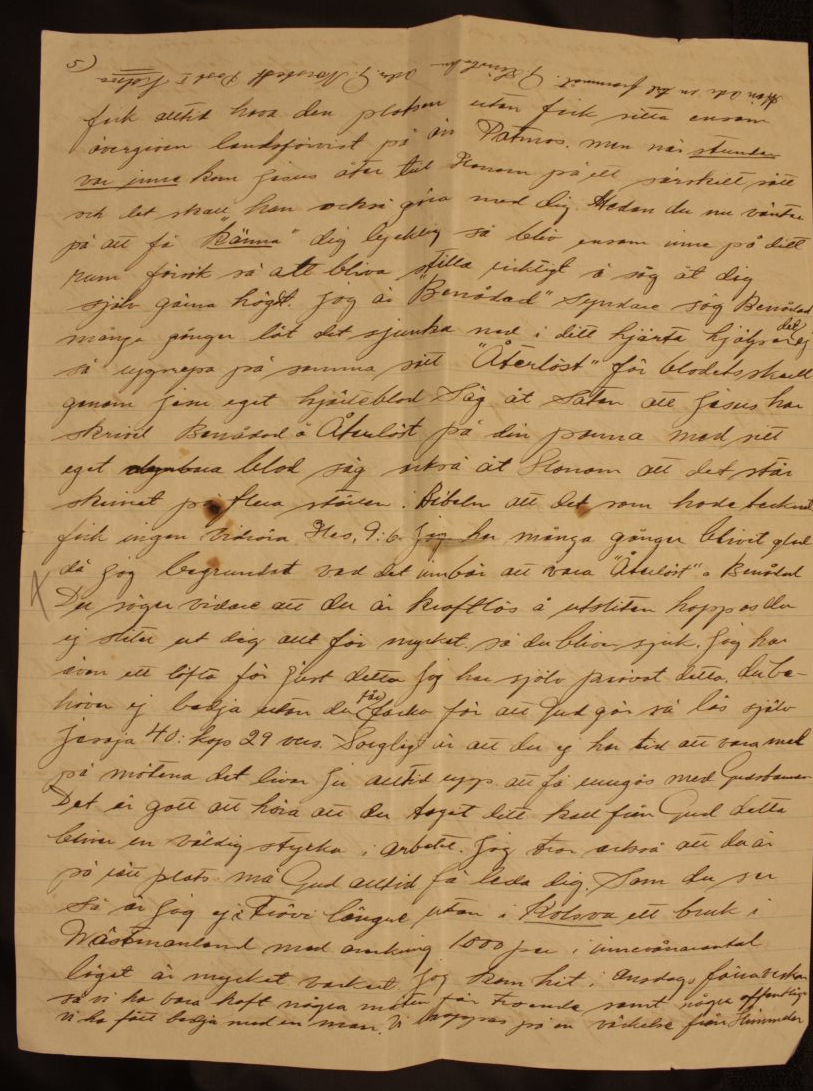 5)
fick alltid hava den platsen utan fick sitta ensam
övergiven landsförvist på ön Patmos. men när stunden
var inne kom Jesus åter till Honom på ett särskilt sätt
och det skall han också göra med dig. Medan du nu väntar
på att få "känna" dig lycklig så bliv ensam inne på ditt
rum försök så att bliva stilla riktigt å säg åt dig
själv gärna högt. Jag är "Benådad" syndare säg Benådad
många gånger låt det sjunka ned i ditt hjärta hjälper det ej
så upprepa på samma sätt "Återlöst" för blodets skull
genom Jesu eget hjärteblod Säg åt Satan att Jesus har
skrivit Benådad å Återlöst på din panna med sitt
eget blod säg också åt Honom att det står
skrivet på flera ställen i Bibeln att det som hade tecknet
fick ingen vidröra Hes. 9:6. Jag har många gånger blivit glad
då jag begrundat vad det innebär att vara "Återlöst" o Benådad
Du säger vidare att du är kraftlös å utsliten hoppas du
ej sliter ut dig allt för mycket så du bliver sjuk. Jag har
även ett löfte för just detta Jag har själv prövat detta. du be-
höver ej bedja utan du får tacka för att Gud gör så läs själv
Jesaja 40: kap 29 vers. Sorgligt är att du ej har tid att vara med
på mötena det livar ju alltid upp att få umgås med Gudsbarnen
Det är gott att höra att du tagit ditt kall från Gud detta
bliver en väldig styrka i arbetet. Jag tror också att du är
på rätt plats må Gud alltid få leda dig. Som du ser
så är jag ej i längre utan i Kolsva ett bruk i
Wästmanland med omkring 1000 per i innevånarantal
läget är mycket vackert. Jag kom hit i onsdags förra veckan
så vi ha bara haft några möten för troende samt några offentliga
vi ha fått bedja med en man. Vi hoppas på en väckelse från Himmelen